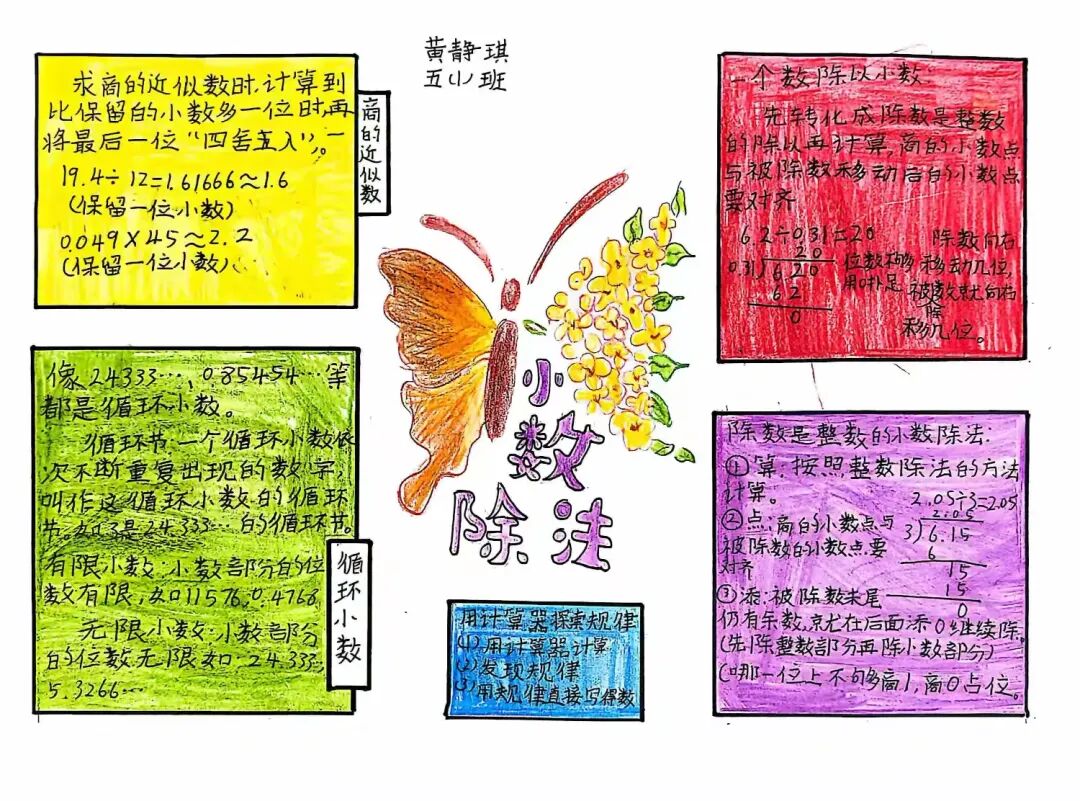 黄静琪
五(1)班
求商的近似数时,计算到
比保留的小数多一位时,再
将最后一位“四舍五入”。
19.4÷12=1.61666≈1.6
(保留一位小数)
0.049×45≈2.2
(保留一位小数)
商的近似数
一个数除以小数:
先转化成除数是整数
的除以再计算,商的小数点
与被除数移动后的小数点
要对齐
6.2÷0.31=20
20
0.31)6.20
62
0
位数不够
用0补足
除数向右
移动几位,
被除数就向右
移几位。
像24333…,0.85454…等
都是循环小数。
循环节:一个循环小数依
次不断重复出现的数字,
叫作这循环小数的循环
节。如3是24.333…的循环节。
有限小数:小数部分的位
数有限,如11576,0.4768
无限小数:小数部分
的位数无限如:24.333,
5.3266…
循环小数
小数
除法
用计算器探索规律
(1)用计算器计算
(2)发现规律
(3)用规律直接写得数
除数是整数的小数除法:
①算:按照整数除法的方法
计算。
2.05÷3=2.05
②点:商的小数点与
被除数的小数点要
对齐
2.05
3)6.15
6
15
15
0
③添:被除数末尾
仍有余数,就在后面添0继续除。
(先除整数部分再除小数部分)
(哪一位上不够商1,商0占位。